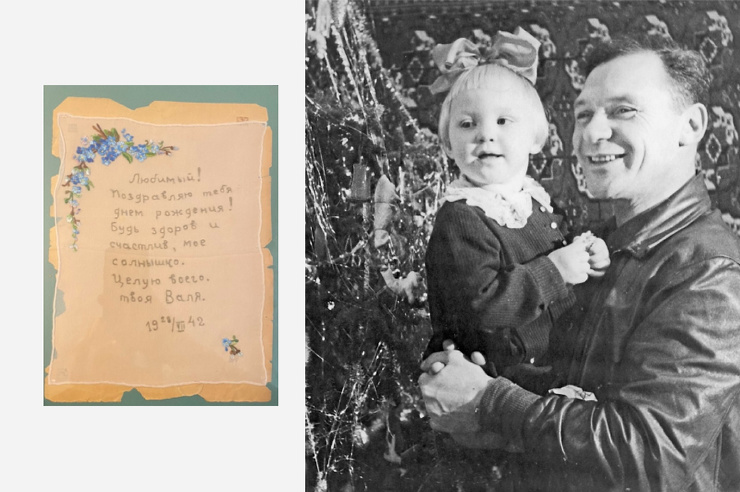 Любимый!
Поздравляю тебя
днем рождения!
Будь здоров и
счастлив, мое
солнышко.
Целую всего.
твоя Валя.
19 28/VII 42